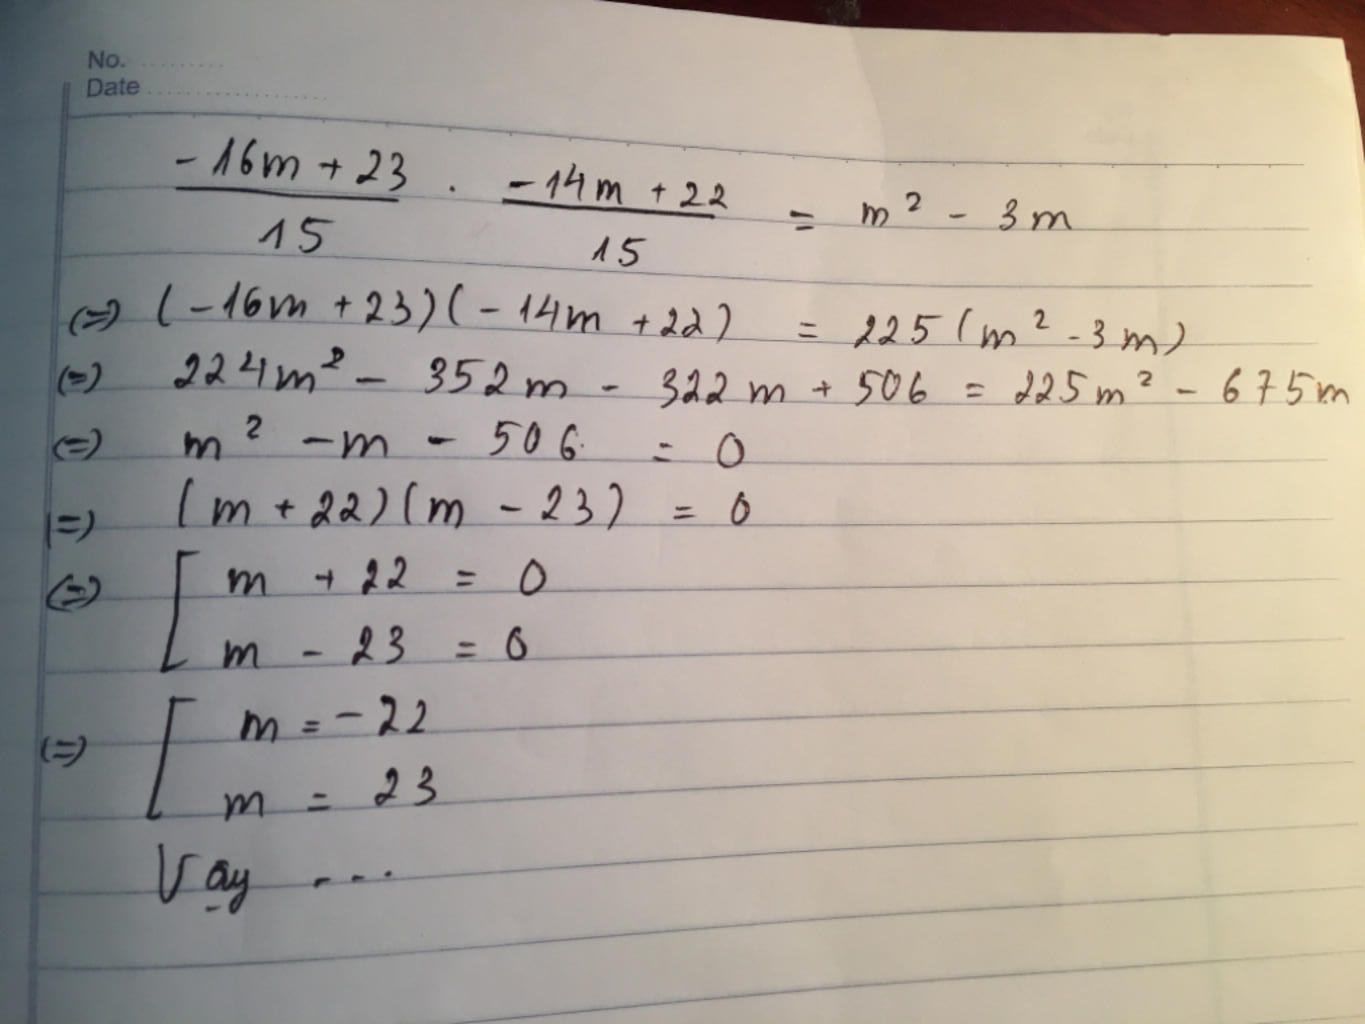 No. ..........
Date ......................
-16m + 23 / 15 . -14m + 22 / 15 = m² - 3m
(=) (-16m + 23)(-14m + 22) = 225(m² - 3m)
(=) 224m² - 352m - 322m + 506 = 225m² - 675m
(=) m² - m - 506 = 0
(=) (m + 22)(m - 23) = 0
(=) [ m + 22 = 0
m - 23 = 0
(=) [ m = -22
m = 23
Vậy ...